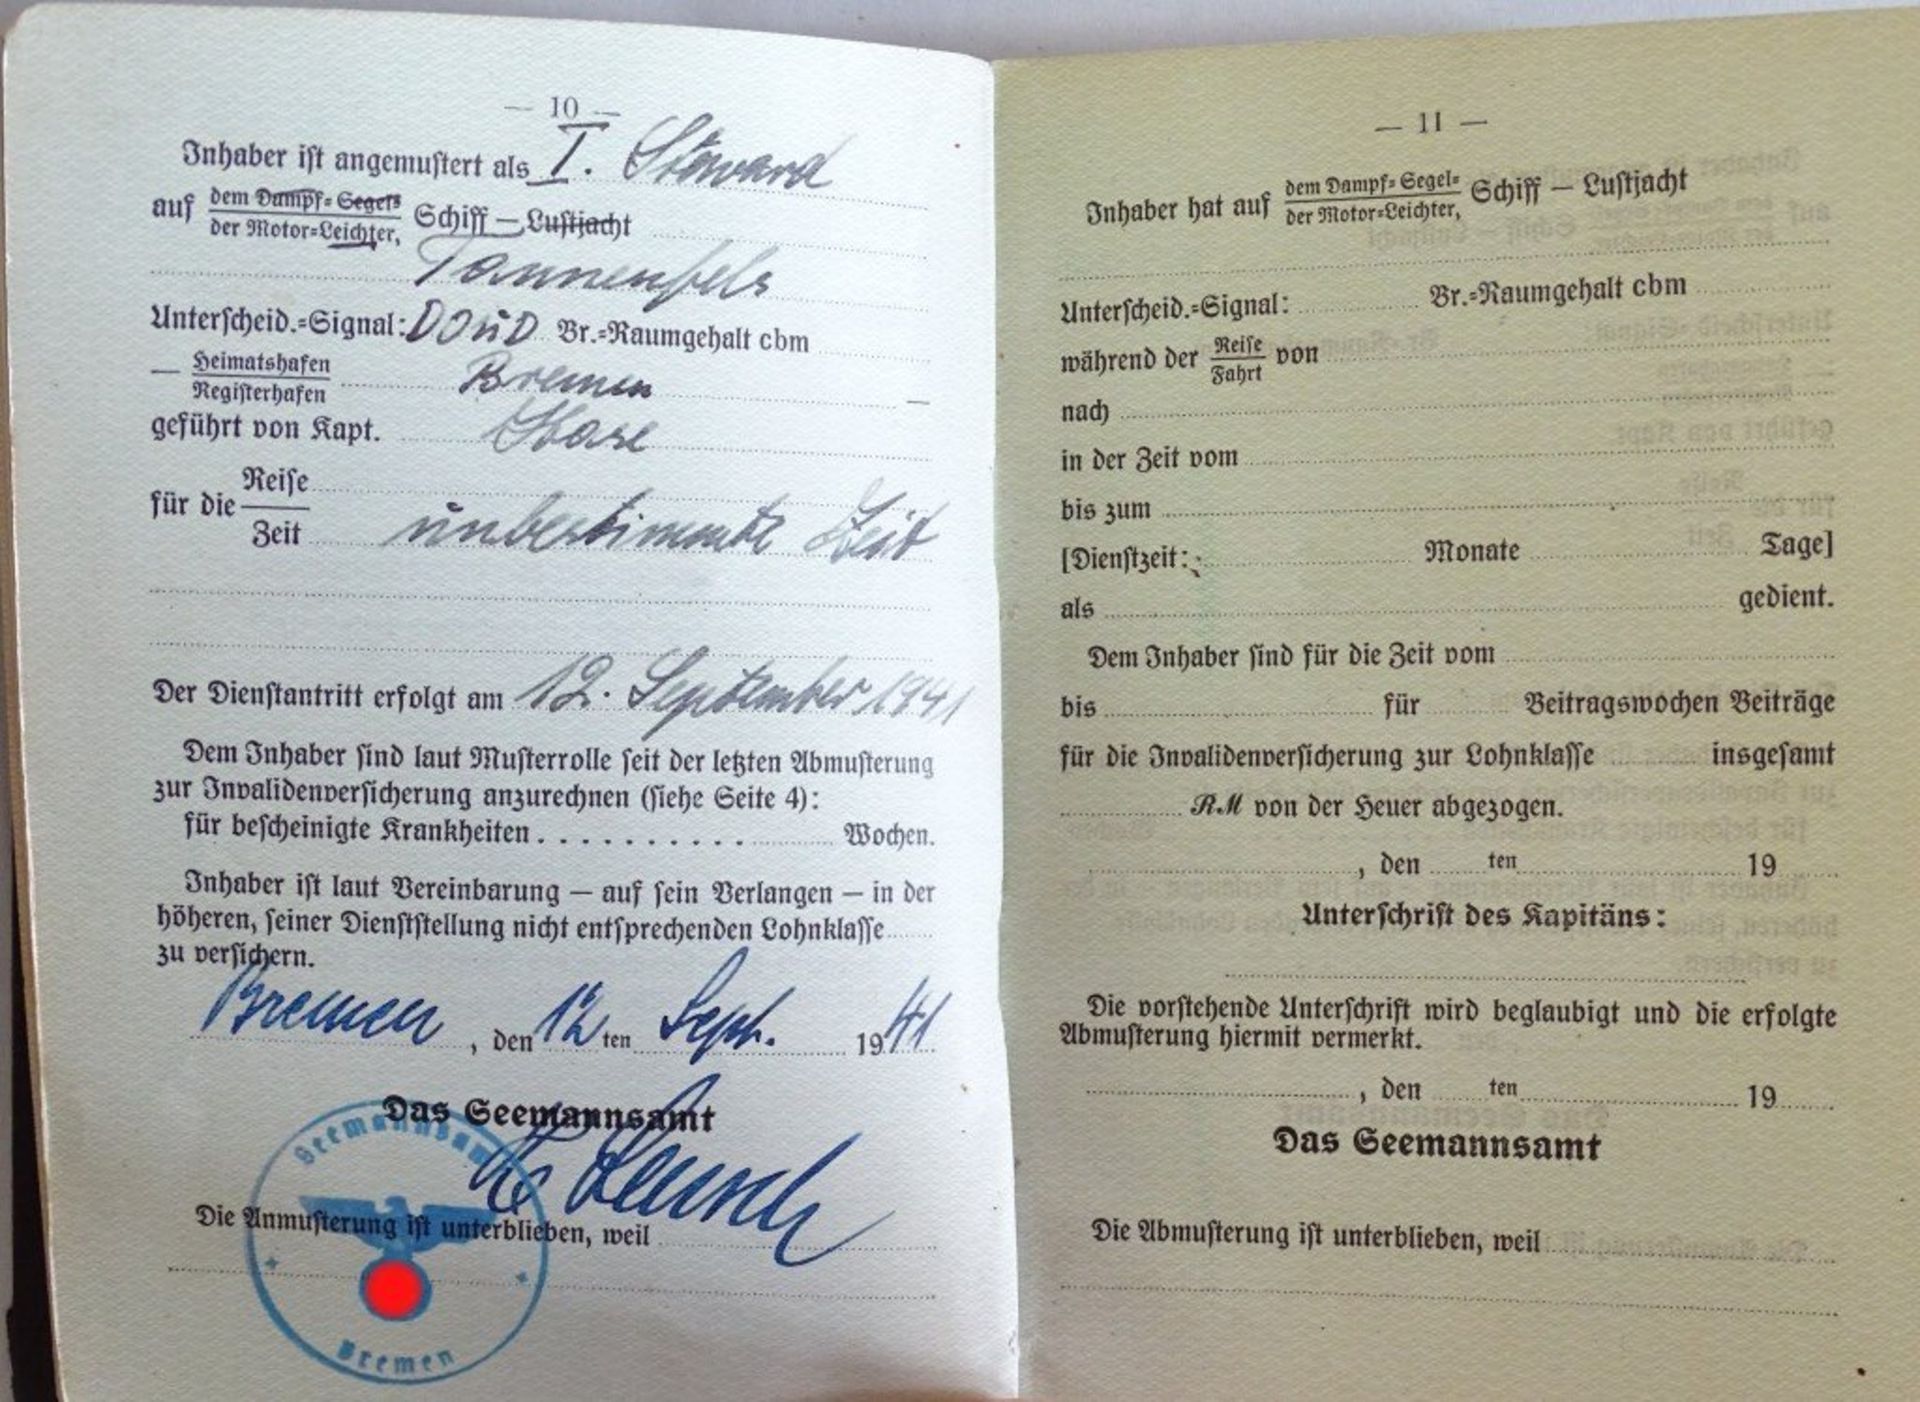 — 10 —
Inhaber ist angemustert als I. Steward
auf dem Dampf= Segels
der Motor=Leichter, Schiff — Lustjacht
Tannenfels
Unterscheid.=Signal: DOUD Br.=Raumgehalt cbm
— Heimatshafen
Registerhafen Bremen —
geführt von Kapt. Hase
für die Reise
Zeit unbestimmte Zeit
Der Dienstantritt erfolgt am 12. September 1941
Dem Inhaber sind laut Musterrolle seit der letzten Abmusterung
zur Invalidenversicherung anzurechnen (siehe Seite 4):
für bescheinigte Krankheiten . . . . . . . . . . Wochen.
Inhaber ist laut Vereinbarung — auf sein Verlangen — in der
höheren, seiner Dienststellung nicht entsprechenden Lohnklasse
zu versichern.
Bremen, den 12 ten Sept. 1941
Das Seemannsamt
Seemannsamt
Die Anmusterung ist unterblieben, weil
Bremen
— 11 —
Inhaber hat auf dem Dampf= Segel=
der Motor=Leichter, Schiff — Lustjacht
Unterscheid.=Signal: Br.=Raumgehalt cbm
während der Reise
Fahrt von
nach
in der Zeit vom
bis zum
[Dienstzeit: Monate Tage]
als gedient.
Dem Inhaber sind für die Zeit vom
bis für Beitragswochen Beiträge
für die Invalidenversicherung zur Lohnklasse insgesamt
RM von der Heuer abgezogen.
, den ten 19
Unterschrift des Kapitäns:
Die vorstehende Unterschrift wird beglaubigt und die erfolgte
Abmusterung hiermit vermerkt.
, den ten 19
Das Seemannsamt
Die Abmusterung ist unterblieben, weil